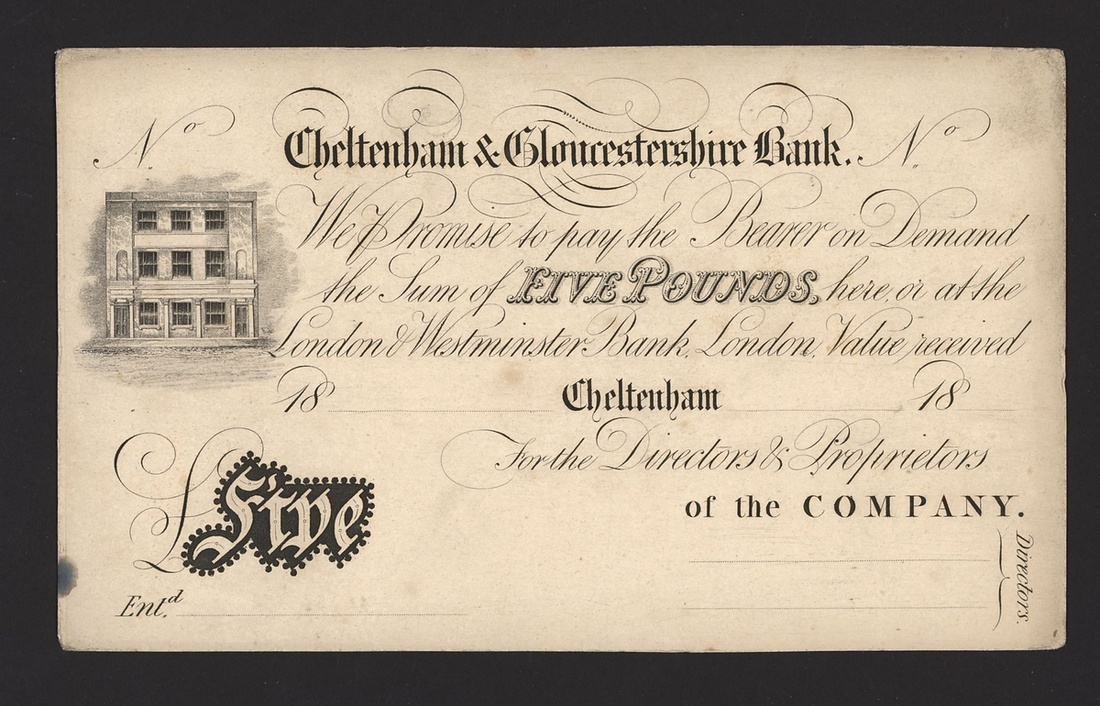 Nº Cheltenham & Gloucestershire Bank. Nº
We Promise to pay the Bearer on Demand
the Sum of FIVE POUNDS, here, or at the
London & Westminster Bank, London, Value received
18 Cheltenham 18
For the Directors & Proprietors
of the COMPANY.
£ Five
Directors.
Entd.